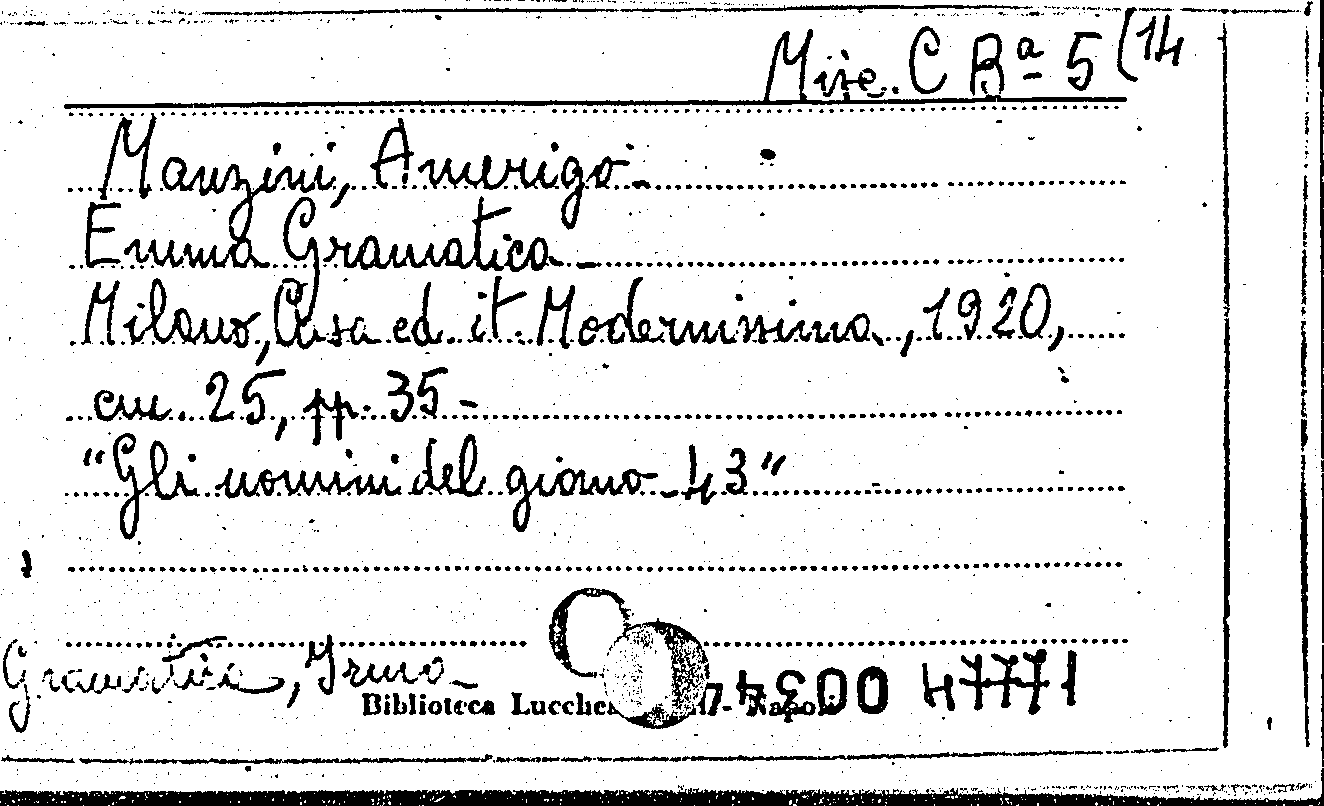 Misc. C Bª 5 (14
Manzini, Amerigo -
Emma Gramatica -
Milano, Casa ed. it. Modernissima, 1920,
cm. 25, pp. 35 -
"Gli uomini del giorno - 43"
Gramatica, Irma -
Biblioteca Lucchesi - Napoli